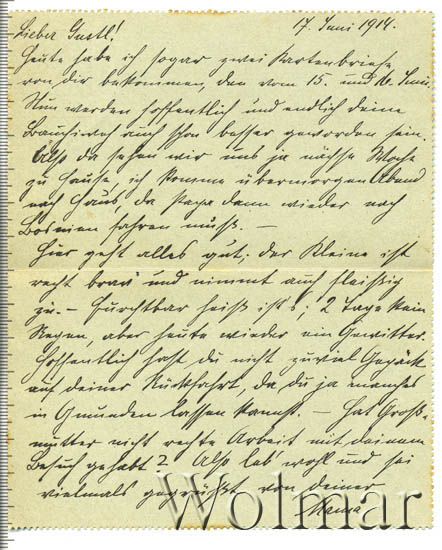 17. Juni 1914.
Lieber Gustl!
Heute habe ich sogar zwei Kartenbriefe
von dir bekommen, den vom 15. und 16. Juni.
Nun werden hoffentlich und endlich deine
Bauchweh auch schon besser geworden sein.
Also da sehen wir uns ja nächste Woche
zu Hause, ich komme übermorgen Abend
nach Haus, da Papa dann wieder nach
Bosnien fahren muß. —
Hier geht alles gut; der Kleine ist
recht brav und nimmt auch fleißig
zu. — Furchtbar heiß ist's; 2 Tage kein
Regen, aber heute wieder ein Gewitter.
Hoffentlich hast du nicht zuviel Gepäck
auf deiner Rückfahrt, da du ja manches
in Gmunden lassen kannst. — Hat Groß-
mutter nicht rechte Arbeit mit deinem
Besuch gehabt? Also leb' wohl und sei
vielmals gegrüßt von deiner
Mama
Wolmar